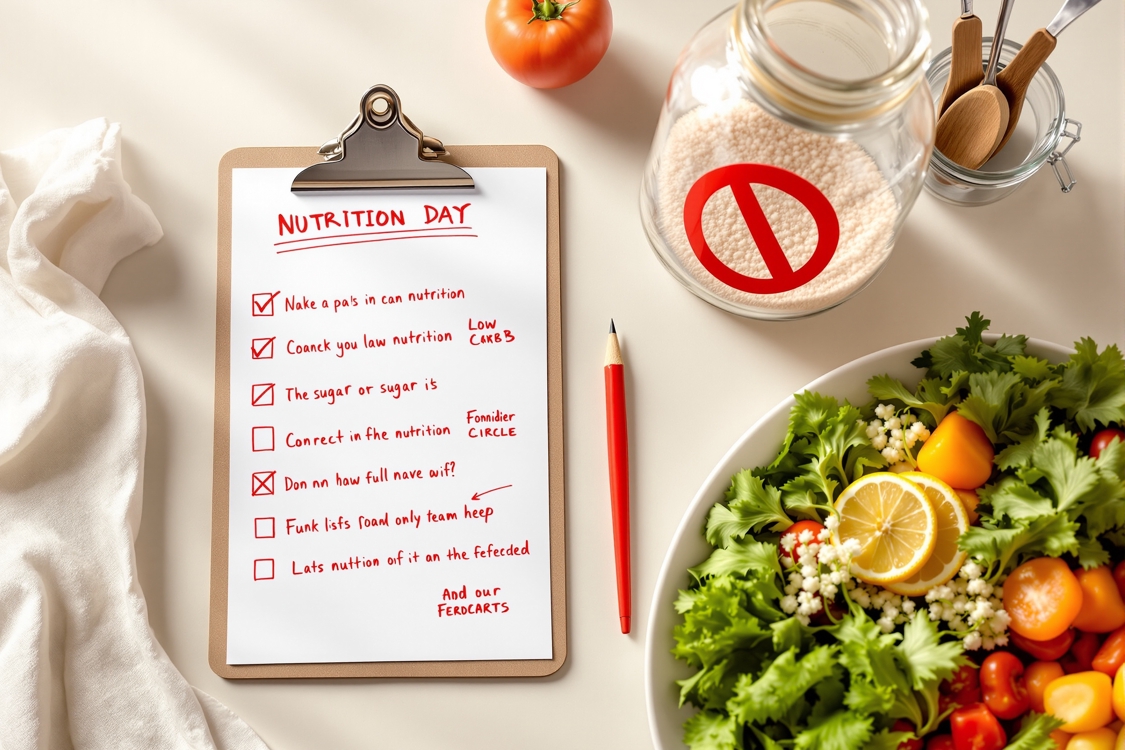 NUTRITION DAY
Nake a pals in can nutrition
Coanck you law nutrition
LOW
CARB3
The sugar or sugar is
Conrect in fhe nutrition
Fonnidier
CIRCLE
Don nn haw full nave wif?
Funk lisfs foad only team heep
Lats nuttion oif it an the fefecded
And our
FERDCARTS